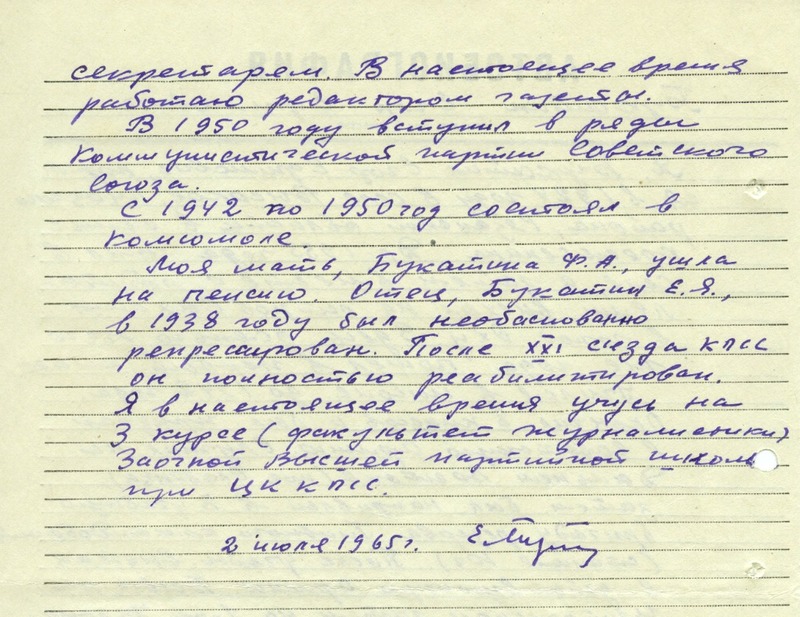 секретарем. В настоящее время
работаю редактором газеты.
В 1950 году вступил в ряды
Коммунистической партии Советского
Союза.
С 1942 по 1950 год состоял в
комсомоле.
Моя мать, Букатина Ф.А., ушла
на пенсию. Отец, Букатин Е.Я.,
в 1938 году был необасновано
репрессирован. После XXI сьезда КПСС
он полностью реабилитирован.
Я в настоящее время учусь на
3 курсе (факультет журналистики)
Заочной Высшей партийной школы
при ЦК КПСС.
2 июля 1965 г.